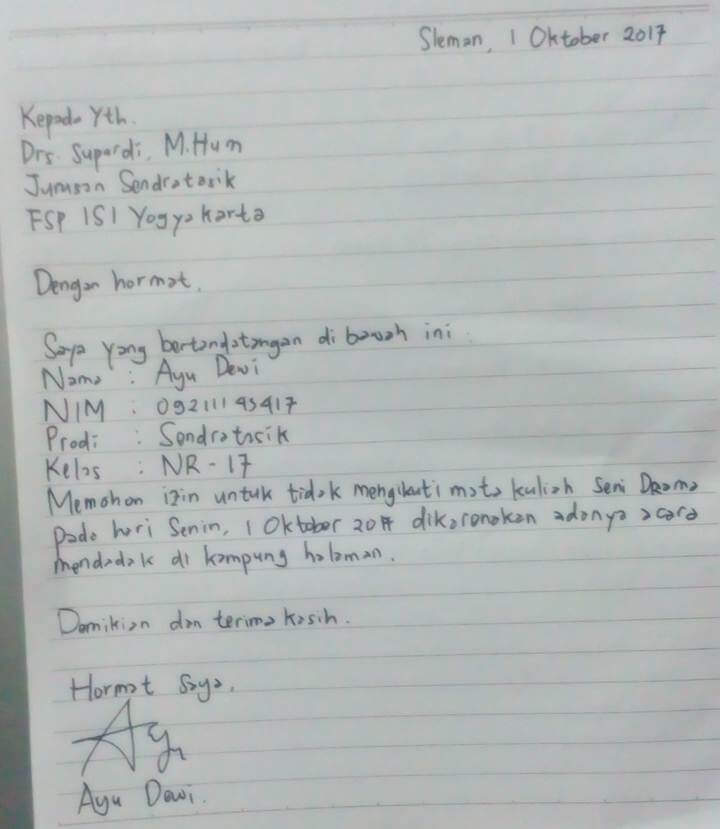 Sleman, 1 Oktober 2017
Kepada Yth.
Drs. Supardi, M.Hum
Jurusan Sendratasik
FSP ISI Yogyakarta
Dengan hormat,
Saya yang bertandatangan di bawah ini :
Nama : Ayu Dewi
NIM : 09211143417
Prodi : Sendratasik
Kelas : NR - 17
Memohon izin untuk tidak mengikuti mata kuliah Seni Drama
pada hari Senin, 1 Oktober 2017 dikarenakan adanya acara
mendadak di kampung halaman.
Demikian dan terima kasih.
Hormat Saya,
Ay
Ayu Dewi.